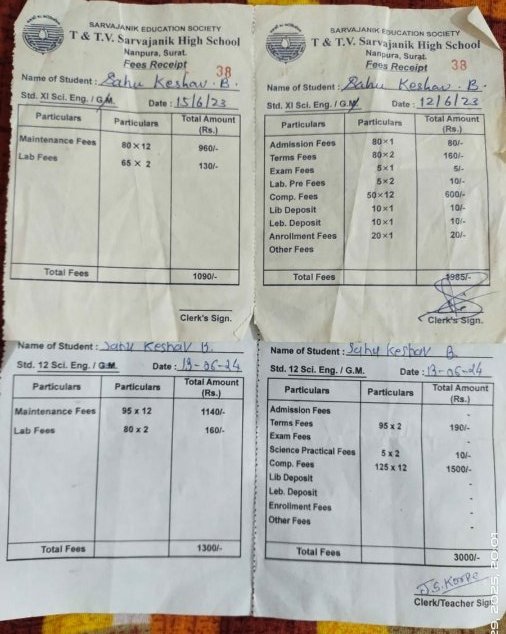 SARVAJANIK EDUCATION SOCIETY
T & T.V. Sarvajanik High School
Nanpura, Surat.
Fees Receipt
38
Name of Student : Sahu Keshav . B .
Std. XI Sci. Eng. / G.M. Date : 15/6/23
Particulars Particulars Total Amount (Rs.)
Maintenance Fees 80 x 12 960/-
Lab Fees 65 x 2 130/-
Total Fees 1090/-
Clerk's Sign.
SARVAJANIK EDUCATION SOCIETY
T & T.V. Sarvajanik High School
Nanpura, Surat.
Fees Receipt
38
Name of Student : Sahu Keshav . B
Std. XI Sci. Eng. / G.M. Date : 12/6/23
Particulars Particulars Total Amount (Rs.)
Admission Fees 80×1 80/-
Terms Fees 80×2 160/-
Exam Fees 5×1 5/-
Lab. Pre Fees 5×2 10/-
Comp. Fees 50×12 600/-
Lib Deposit 10×1 10/-
Leb. Deposit 10×1 10/-
Anrollment Fees 20×1 20/-
Other Fees
Total Fees 985/-
Clerk's Sign.
Name of Student : Sahu Keshav B.
Std. 12 Sci. Eng. / G.M. Date : 13-06-24
Particulars Particulars Total Amount (Rs.)
Maintenance Fees 95 x 12 1140/-
Lab Fees 80 x 2 160/-
Total Fees 1300/-
Name of Student : Sahu Keshav B
Std. 12 Sci. Eng. / G.M. Date : 13-06-24
Particulars Particulars Total Amount (Rs.)
Admission Fees -
Terms Fees 95 x 2 190/-
Exam Fees -
Science Practical Fees 5 x 2 10/-
Comp. Fees 125 x 12 1500/-
Lib Deposit -
Leb. Deposit -
Enrollment Fees -
Other Fees -
Total Fees 3000/-
Clerk/Teacher Sign
29, 2025, 20:01